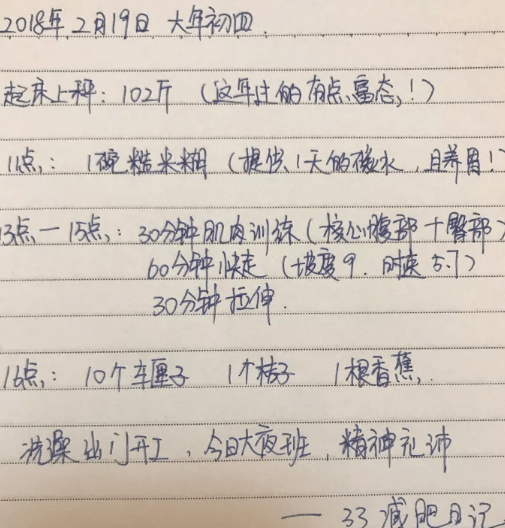 2018年2月19日 大年初四.
起床上秤: 102斤 (这年过的有点富态!)
11点: 1碗糙米糊 (提供1天的碳水,且养胃!)
13点-15点: 30分钟肌肉训练(核心腹部+臀部)
60分钟快走 (坡度9. 时速5.7)
30分钟拉伸.
16点: 10个车厘子 1个桔子 1根香蕉.
洗澡出门开工,今日大夜班,精神充沛
——33减肥日记